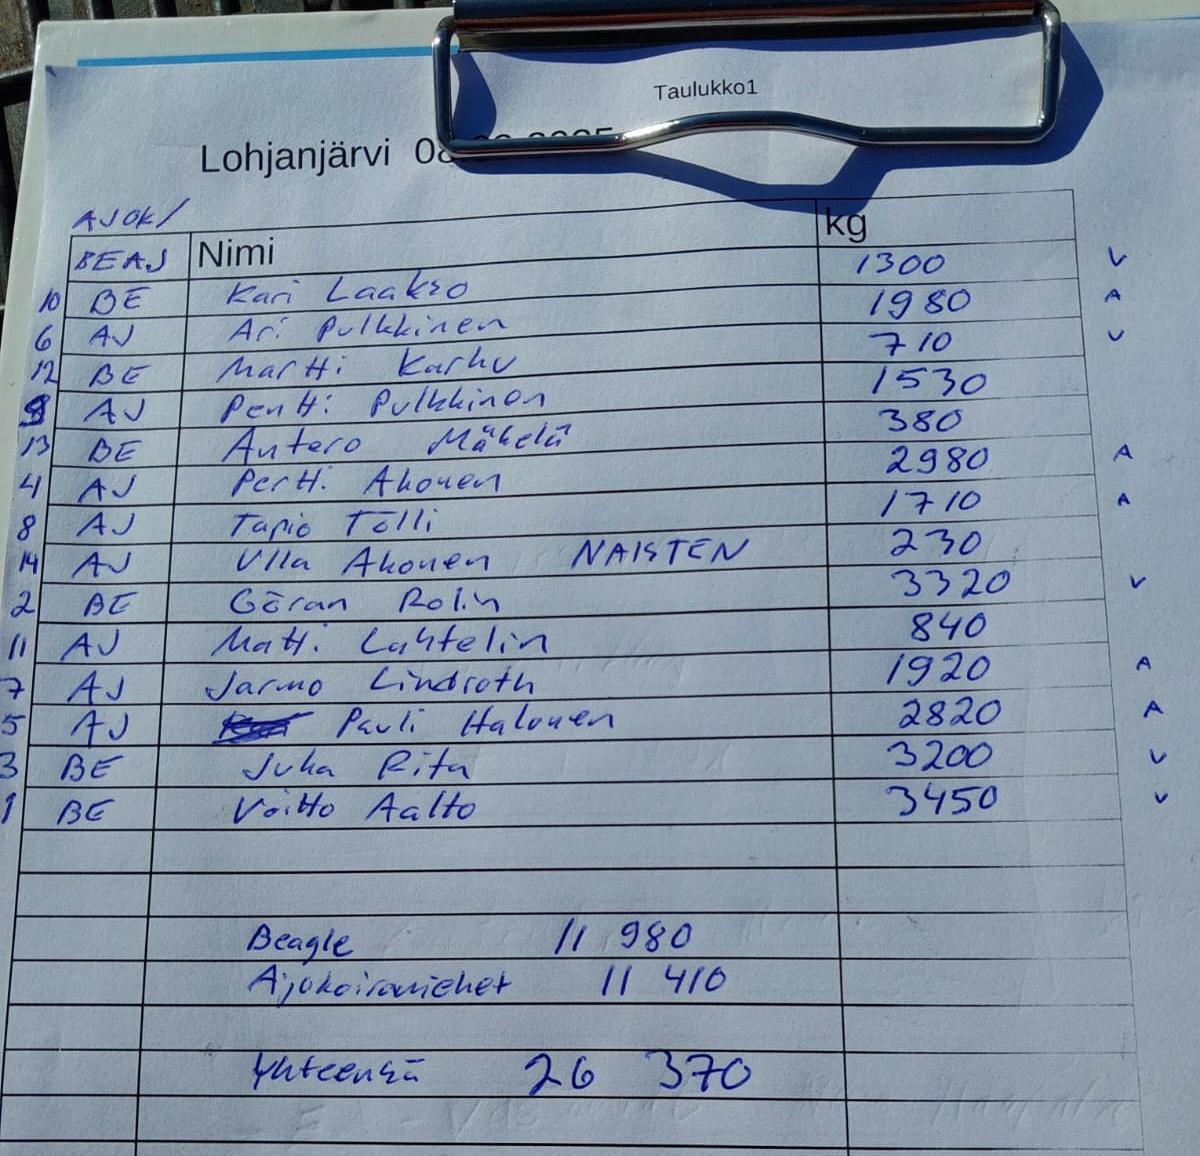 Taulukko1
Lohjanjärvi 08
AJOK/
BEAJ Nimi kg
10 BE Kari Laakso 1300 V
6 AJ Ari Pulkkinen 1980 A
12 BE Martti Karhu 710 V
9 AJ Pentti Pulkkinen 1530
13 BE Antero Mäkelä 380
4 AJ Pertti Ahonen 2980 A
8 AJ Tapio Tölli 1710 A
14 AJ Ulla Ahonen NAISTEN 230
2 BE Göran Rolin 3320 V
11 AJ Matti Lahtelin 840
7 AJ Jarmo Lindroth 1920 A
5 AJ Pauli Halonen 2820 A
3 BE Juha Rita 3200 V
1 BE Voitto Aalto 3450 V
Beagle 11 980
Ajokoiramiehet 11 410
Yhteensä 26 370